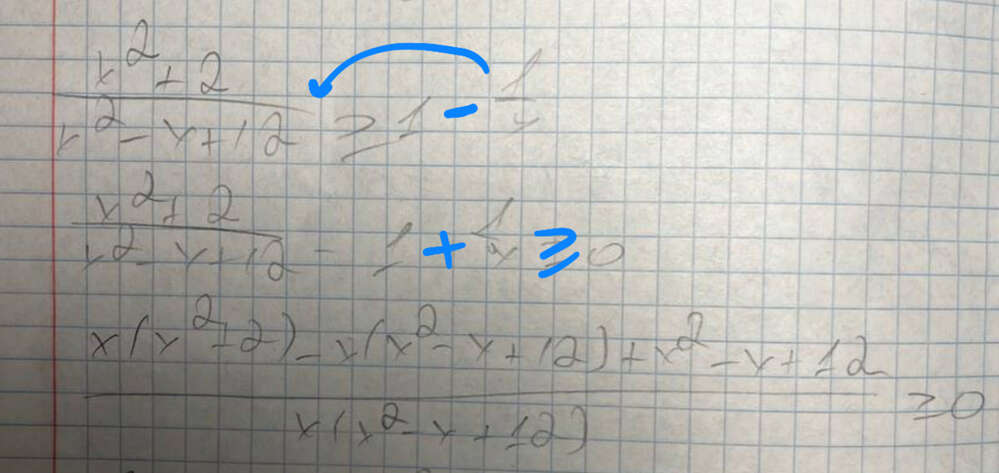 (x^2+2)/(x^2-x+12) ≥ 1 - 1/x
(x^2+2)/(x^2-x+12) - 1 + 1/x ≥ 0
(x(x^2+2)-x(x^2-x+12)+x^2-x+12)/(x(x^2-x+12)) ≥ 0